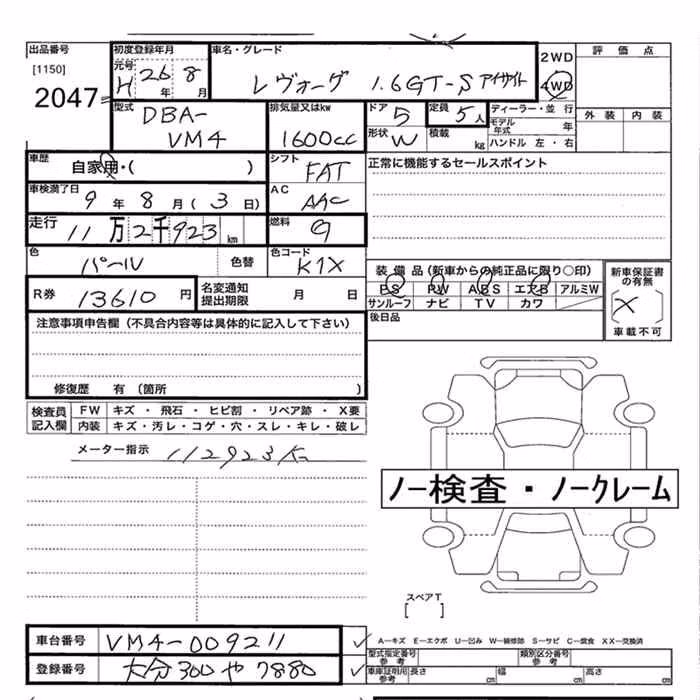 出品番号
[1150]
2047
初度登録年月
元号 H 26年 8月
車名・グレード
レヴォーグ 1.6GT-S アイサイト
2WD
4WD
評価点
外装 内装
型式
DBA-
VM4
排気量又はkw
1600cc
ドア 5
定員 5人
形状 W
積載 kg
ディーラー・並行
モデル年式 年
ハンドル 左・右
車歴
自家用・( )
シフト
FAT
正常に機能するセールスポイント
車検満了日
9年 8月(3日)
AC
AAC
走行
11万2千923km
燃料
G
色
パール
色替
色コード
K1X
R券 13610円
名変変通知
提出期限 月 日
装備品(新車からの純正品に限り○印)
PS PW ABS エアB アルミW
サンルーフ ナビ TV カワ
新車保証書
の有無
[X]
車載不可
後日品
注意事項申告欄(不具合内容等は具体的に記入して下さい)
修復歴 有(箇所 )
検査員
記入欄
FW キズ・飛石・ヒビ割・リペア跡・X要
内装 キズ・汚レ・コゲ・穴・スレ・キレ・破レ
メーター指示 112923K
ノー検査・ノークレーム
スペアT
[ ]
車台番号 VM4-009211
登録番号 大分300や7880
A-キズ E-エクボ U-凹み W-補修跡 S-サビ C-腐食 XX-交換済
型式指定番号 参考
類別区分番号 参考
車庫証明用 参考 長さ cm 幅 cm 高さ cm